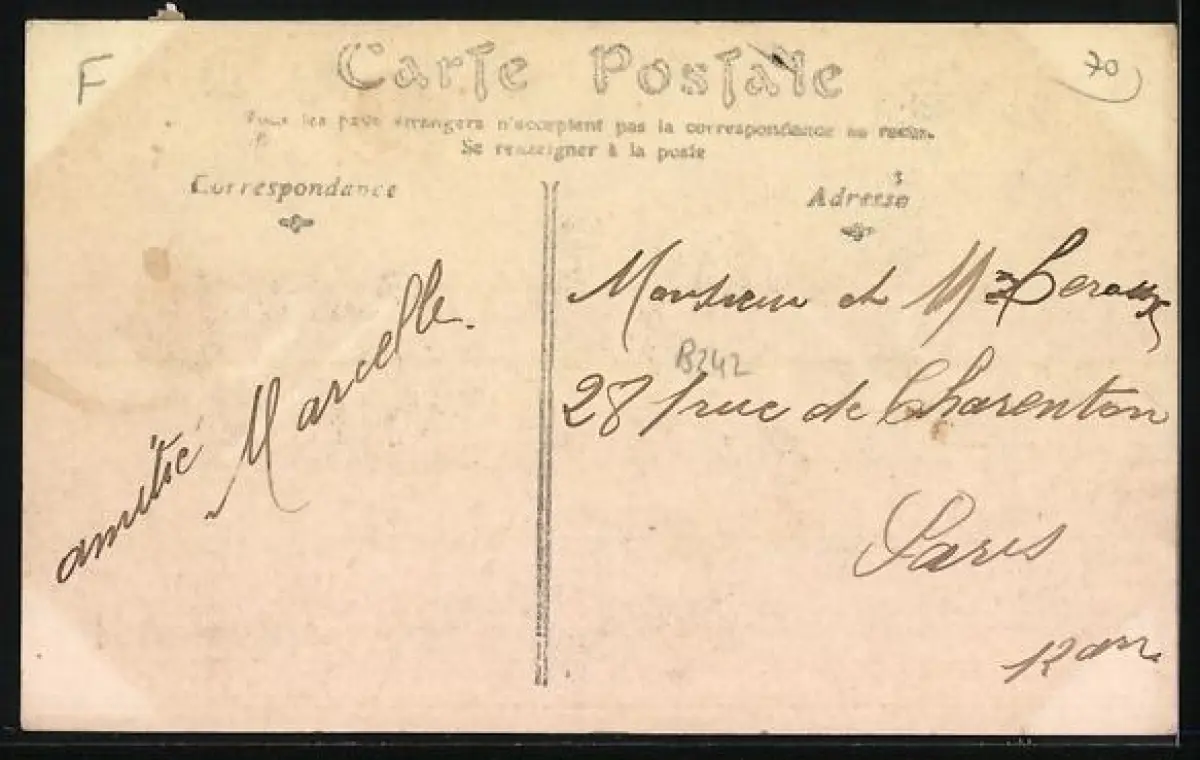 F
70
Carte Postale
Tous les pays étrangers n'acceptent pas la correspondance au recto.
Se renseigner à la poste
Correspondance
Adresse
amitié Marcelle.
Monsieur et M
B242
28 rue de Charenton
Paris
12 arr